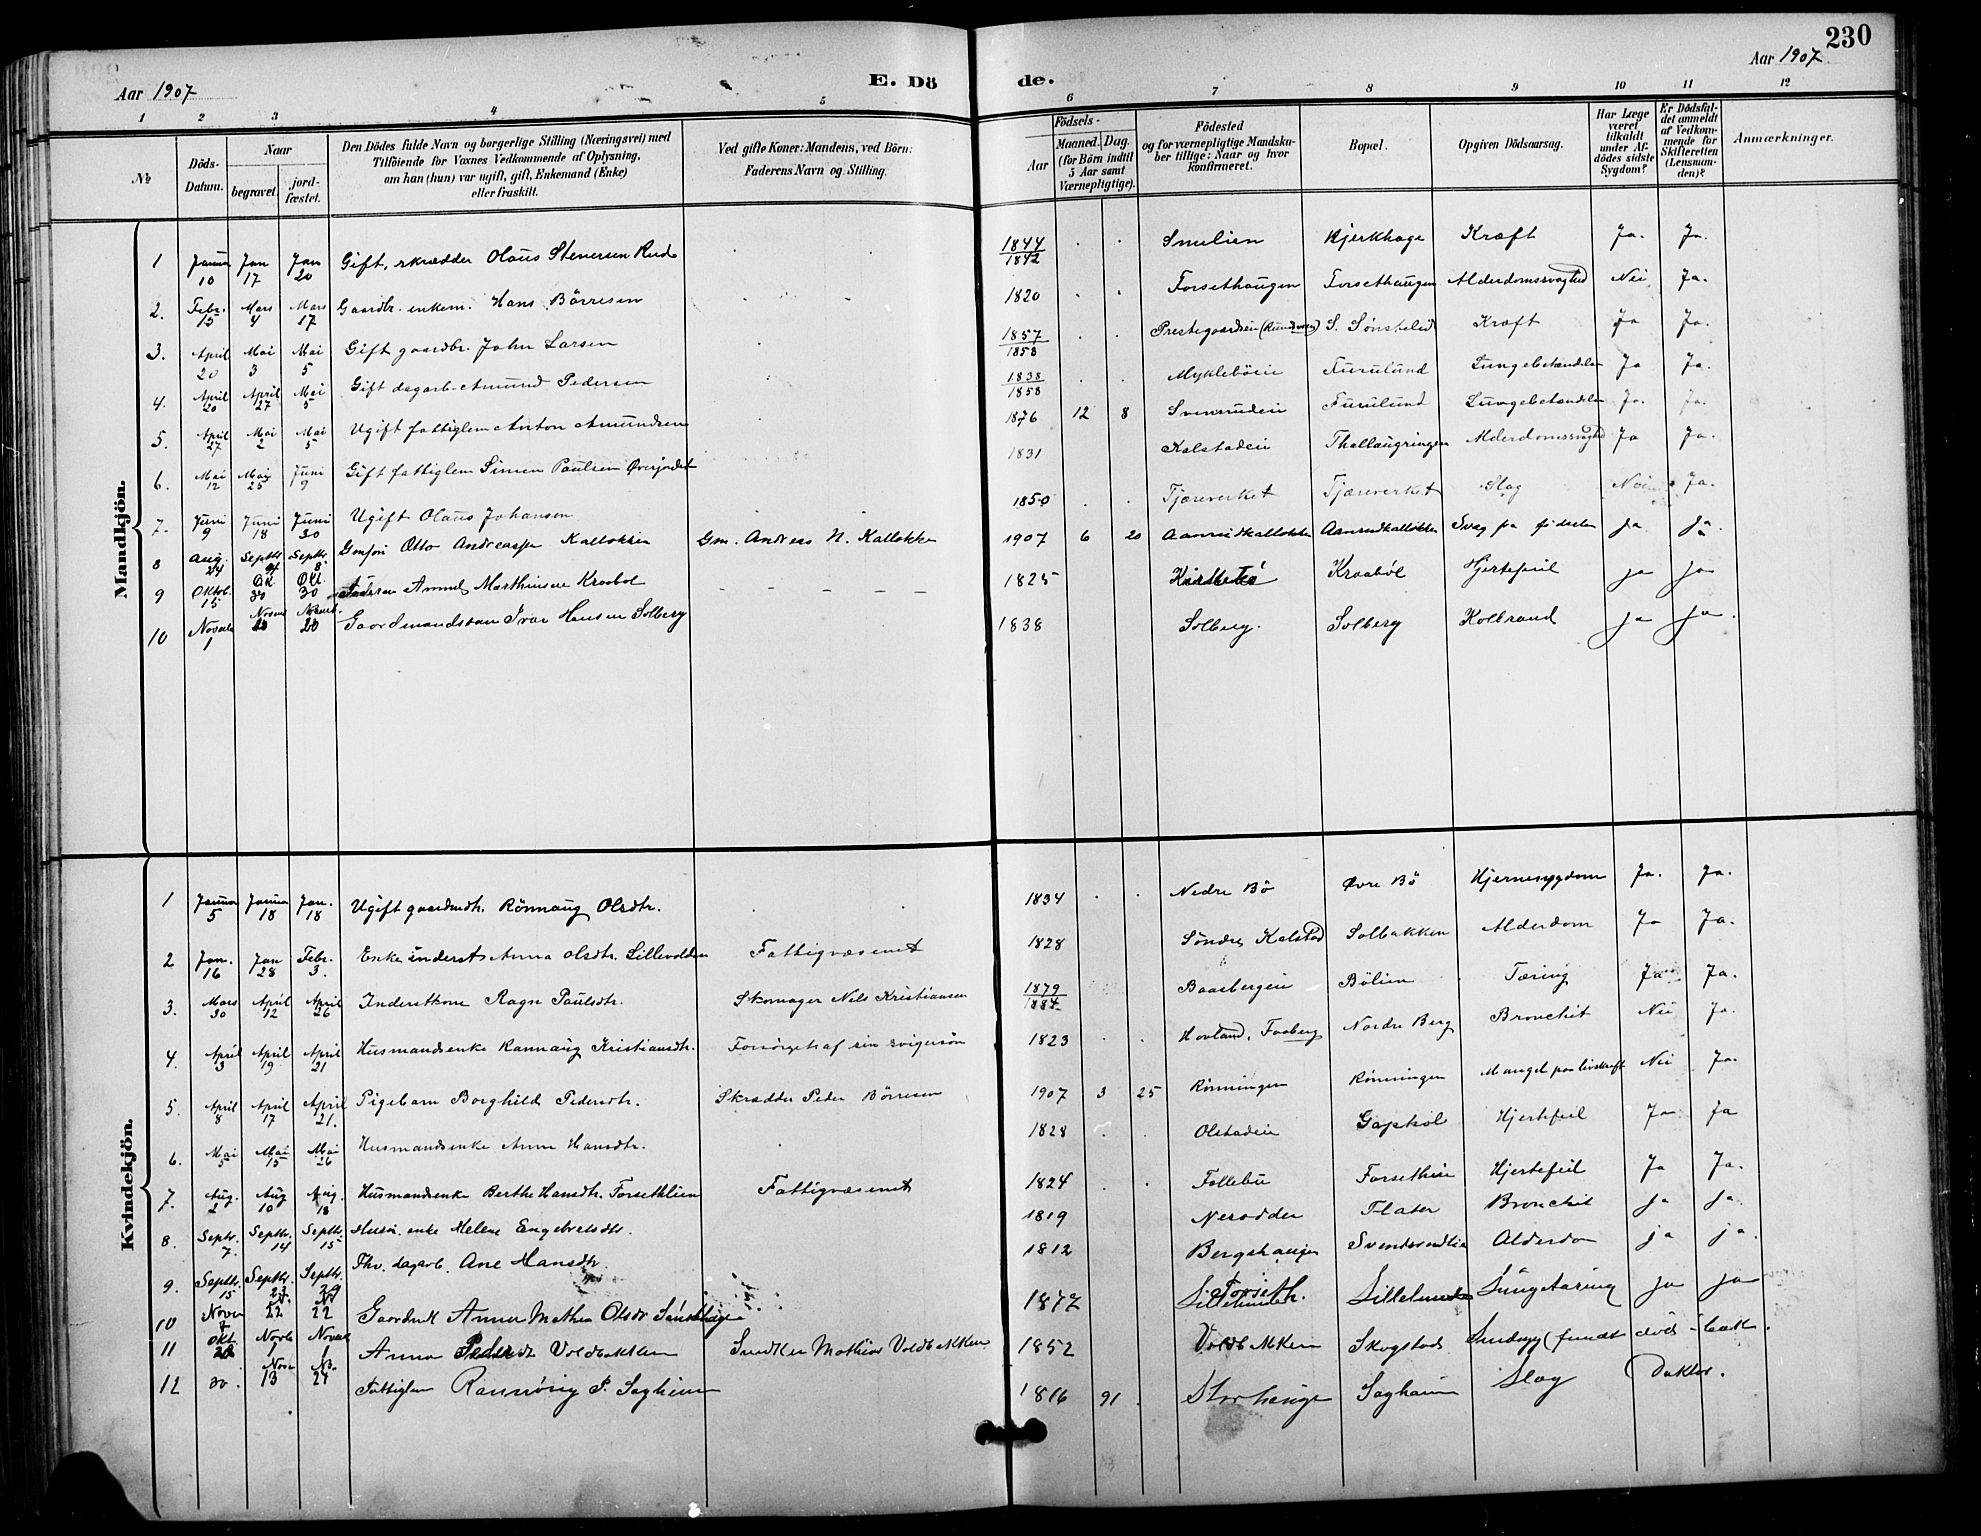 230
Aar 1907
E. Dö de.
Aar 1907
1 2 3 4 5 6 7 8 9 10 11 12
No.
Döds-Datum.
Naar
begravet.
jordfæstet.
Den Dödes fulde Navn og borgerlige Stilling (Næringsvei) med Tilföiende for Voxnes Vedkommende af Oplysning, om han (hun) var ugift, gift, Enkemand (Enke) eller fraskilt.
Ved gifte Koner: Mandens, ved Börn: Faderens Navn og Stilling.
Födsels-
Aar
Maaned. Dag.
(for Börn indtil 5 Aar samt Værnepligtige).
Födested og for værnepligtige Mandskaber tillige: Naar og hvor konfirmeret.
Bopæl.
Opgiven Dödsaarsag.
Har Læge været tilkaldt under Afdödes sidste Sygdom?
Er Dödsfaldet anmeldt af Vedkommende for Skifteretten (Lensmanden)?
Anmærkninger.
Mandkjön.
1 Januar 10 Jan 17 Jan 20 Gift, skrædder Olaus Stenersen Rud 1844 1842 Smulien Bjerkhage Kræft Ja. Ja.
2. Febr. 15 Mars 4 Mars 17 Gaardbr. enkem. Hans Börresen 1820 Forsethaugen Forsethaugen Alderdomssvaghed Nei Ja.
3. April 20 Mai 3 Mai 5 Gift gaardbr. John Larsen 1857 1858 S. Sønsteliid Kræft Ja Ja.
4. April 20 April 27 Mai 5 Gift dagarb. Amund Pedersen 1838 1858 Mykleböeie Furulund Lungebetændelse Ja Ja.
5. April 27 Mai 2 Mai 5 Ugift fattiglem Anton Amundsen 1876 12 8 Svensrudeie Furulund Lungebetændelse Ja. Ja.
6. Mai 12 Mai 25 Juni 9 Gift fattiglem Simen Paulsen Øverjordet 1831 Kalstadeie Thallaugringen Alderdomssvaghed Ja Ja.
7. Juni 9 Juni 18 Juni 30 Ugift Olaus Johansen 1850 Tjæreverket Tjæreverket Slag Nei Ja.
8 Aug. 24 Septbr. Septbr. 8 Otto Andreassen Kalløkken Gm. Andreas N. Kalløkken 1907 6 20 Svag fra fødselen ja ja
9 Oktob. 15 Okt. 30 Okt. 30 Amund Marthinsen Kraabøl 1825 Kraabøl Hjertefeil ja ja
10 Novbr 1 Novem 20 Novemb. 20 Gaardmandsøn Ivar Hansen Solberg 1838 Solberg. Solberg Kolbrand ja ja.
Kvindekjön.
1 Januar 5 Januar 18 Jan. 18 Ugift gaardmdtr. Rönnaug Olsdtr. 1834 Nedre Bö Øvre Bö Hjernesygdom Ja. Ja.
2 Jan. 16 Jan 28 Febr. 3. Enke inderst Anna Olsdtr. Lillevolden Fattigvæsenet 1828 Söndre Kalstad Solbakken Alderdom Ja Ja.
3. Mars 30 April 12 April 26 Inderstkone Ragn. Paulsdtr. Skomager Nils Kristiansen 1879 1884 Baasbergeie Bölien Tæring Ja Ja.
4. April 3 April 19 April 21 Husmandsenke Rannaug Kristiansdtr. Forsörget af sin svigersön 1823 Hovland, Faaberg Nordre Berg Bronchit Nei Ja.
5. April 8 April 17 April 21. Pigebarn Borghild Pedersdtr. Skrædder Peder Börresen 1907 3 25 Rönningen Rönningen Mangel paa livskraft Nei Ja.
6. Mai 5 Mai 15 Mai 26 Husmandsenke Anne Hansdtr. 1828 Olstadeie Gapkol Hjertefeil Ja ja
7. Aug. 2 Aug 10 Aug. 18 Husmandsenke Berthe Hansdtr. Forsethlien Fattigvæsenet 1824 Follebu Forsethlie Hjertefeil Ja Ja.
8. Septbr. 7 Septbr. 14 Septbr. 15 enke Helene Engebretsdtr. 1819 Nerodden Flater Bronchit ja ja.
9. Septbr. 15 Septbr. Septbr. Fhv. dagarb. Ane Hansdtr. 1812 Bergshaugen Alderdo ja ja.
10 Novem 22 22 Anna Mathea Olsdr 1877 Forseth. Lungetæring ja ja
11 Okt 28 Novb. 1 Novb. 1 Anna Pedersdtr Voldbakken Mathias Voldbakken 1852 Voldbakken Skogstad (fundet död i bæk.
12 30. Nov. 13 24 Fattiglem Rannöig P. Sagheim 1816 91 Storhauge Sagheim Slag Doktor.